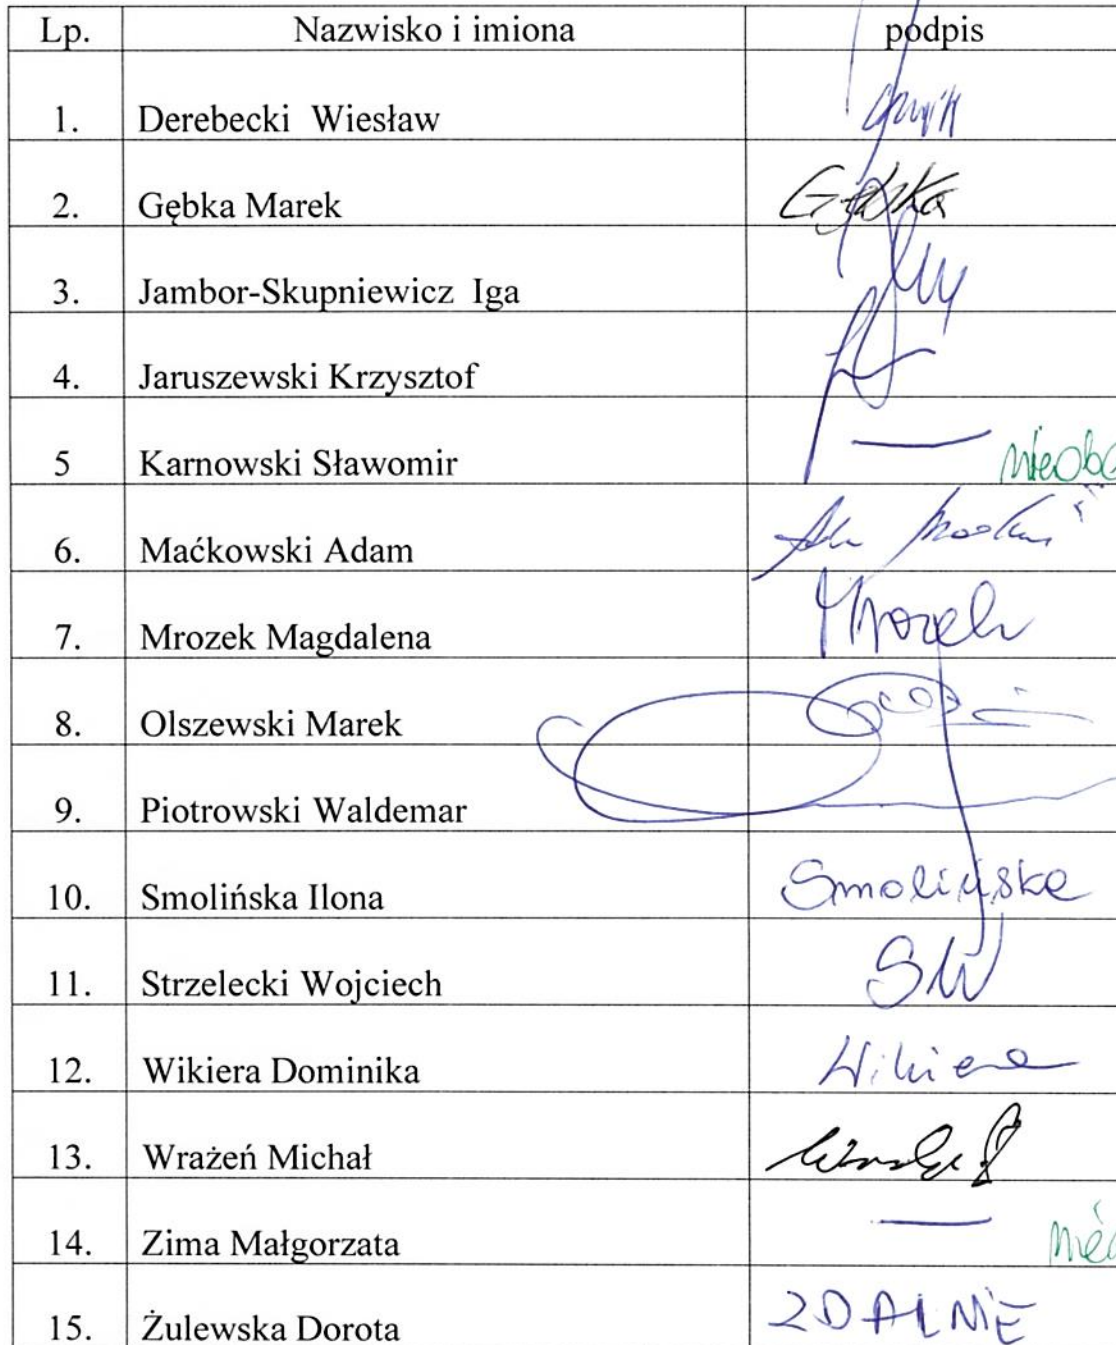 Lp. Nazwisko i imiona podpis
1. Derebecki Wiesław
2. Gębka Marek Gębka
3. Jambor-Skupniewicz Iga
4. Jaruszewski Krzysztof
5 Karnowski Sławomir — nieobe
6. Maćkowski Adam
7. Mrozek Magdalena Mrozek
8. Olszewski Marek
9. Piotrowski Waldemar
10. Smolińska Ilona Smolińska
11. Strzelecki Wojciech SW
12. Wikiera Dominika Wikiera
13. Wrażeń Michał
14. Zima Małgorzata —
15. Żulewska Dorota ZDALNIE